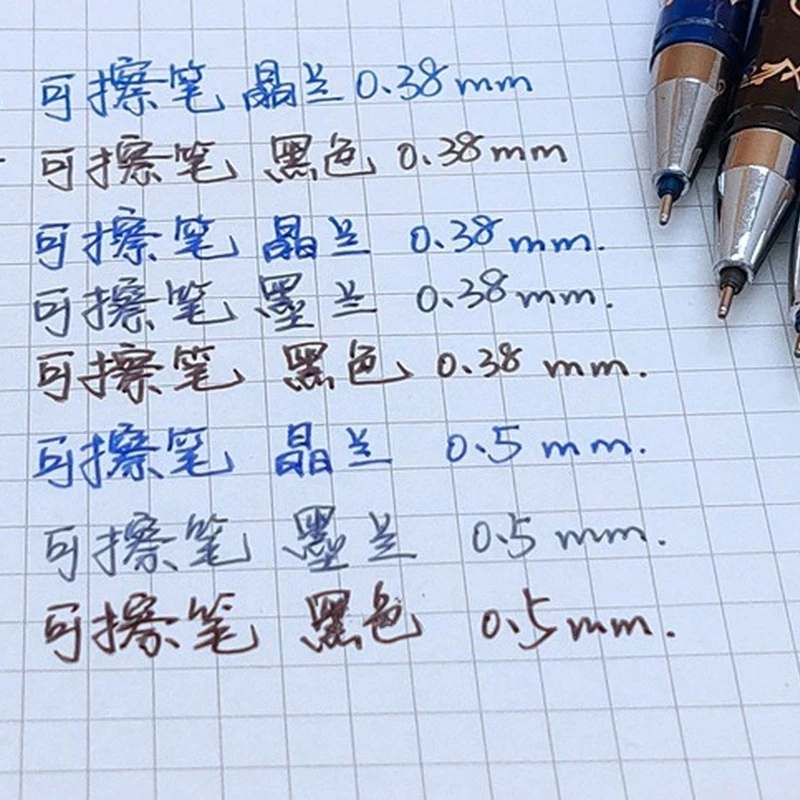 可擦笔 晶兰 0.38mm
可擦笔 黑色 0.38mm
可擦笔 晶兰 0.38mm.
可擦笔 墨兰 0.38mm.
可擦笔 黑色 0.38 mm.
可擦笔 晶兰 0.5mm.
可擦笔 墨兰 0.5mm.
可擦笔 黑色 0.5mm.